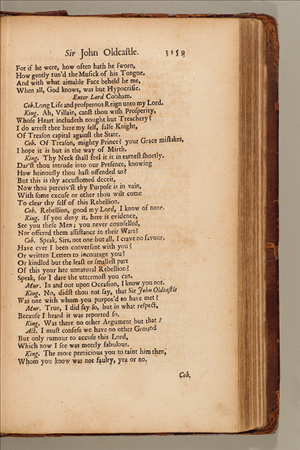 Sir John Oldcastle. 3158
For if he were, how often hath he sworn,
How gently tun'd the Musick of his Tongue,
And with what aimable Face beheld he me,
When all, God knows, was but Hypocrisie.
Enter Lord Cobham.
Cob. Long Life and prosperous Reign unto my Lord.
King. Ah, Villain, canst thou wish Prosperity,
Whose Heart includeth nought but Treachery?
I do arrest thee here my self, false Knight,
Of Treason capital against the State.
Cob. Of Treason, mighty Prince? your Grace mistakes,
I hope it is but in the way of Mirth.
King. Thy Neck shall feel it is in earnest shortly.
Dar'st thou intrude into our Presence, knowing
How heinously thou hast offended us?
But this is thy accustomed deceit,
Now thou perceiv'st thy Purpose is in vain,
With some excuse or other thou wilt come
To clear thy self of this Rebellion.
Cob. Rebellion, good my Lord, I know of none.
King. If you deny it, here is evidence,
See you these Men; you never counselled,
Nor offered them assistance in their Wars?
Cob. Speak, Sirs, not one but all, I crave no favour.
Have ever I been conversant with you?
Or written Letters to incourage you?
Or kindled but the least or smallest part
Of this your late unnatural Rebellion?
Speak, for I dare the uttermost you can.
Mur. In and out upon Occasion, I know you not.
King. No, didst thou not say, that Sir John Oldcastle
Was one with whom you purpos'd to have met?
Mur. True, I did say so, but in what respect,
Because I heard it was reported so.
King. Was there no other Argument but that?
Act. I must confess we have no other Ground
But only rumour to accuse this Lord,
Which now I see was meerly fabulous.
King. The more pernicious you to taint him then,
Whom you know was not faulty, yea or no.
Cob.